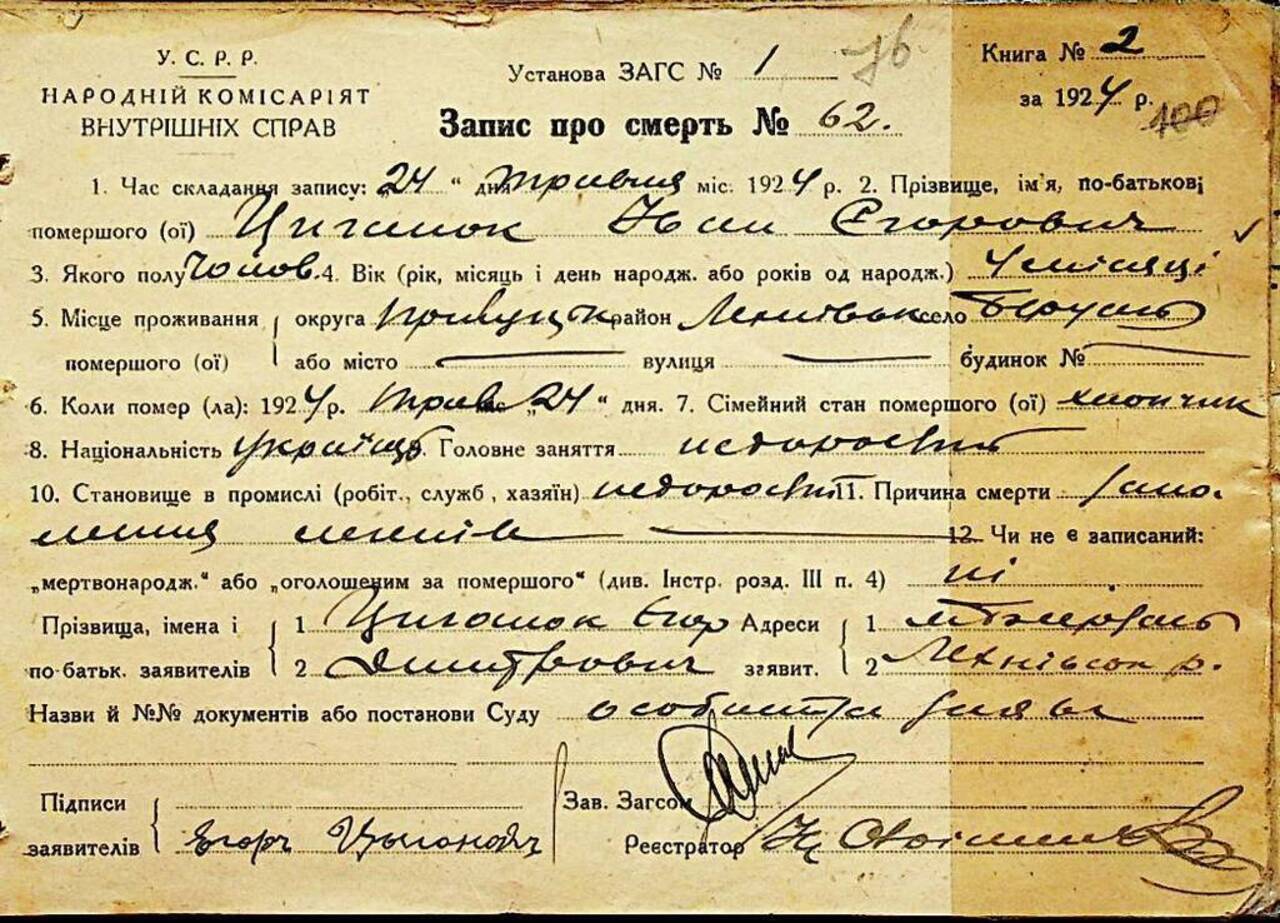 У. С. Р. Р.
НАРОДНІЙ КОМІСАРІЯТ
ВНУТРІШНІХ СПРАВ
Установа ЗАГС № 1
76
Книга № 2
за 1924 р.
100
Запис про смерть № 62.
1. Час складання запису: „24 “ дня травня міс. 1924 р. 2. Прізвище, ім'я, по-батькові
помершого (ої) Циганок Іван Єгорович
3. Якого полу чолов. 4. Вік (рік, місяць і день народж. або років од народж.) 4 місяці
5. Місце проживання округа Прилуцьк район Лехнівськ село
помершого (ої) або місто вулиця будинок №
6. Коли помер (ла): 1924 р. трав. міс „24 “ дня. 7. Сімейний стан помершого (ої) хлопчик
8. Національність українець. Головне заняття недорослий
10. Становище в промислі (робіт., служб , хазяїн) недорослий 11. Причина смерти запа-
лення легенів 12. Чи не є записаний:
„мертвонародж.“ або „оголошеним за помершого“ (див. Інстр. розд. III п. 4) ні
Прізвища, імена і 1 Циганок Єгор Адреси 1
по-батьк. заявителів 2 Дмитрович заявит. 2 Лехнівськ р.
Назви й №№ документів або постанови Суду особиста заява
Підписи Зав. Загсом
заявителів Егоръ Реєстратор